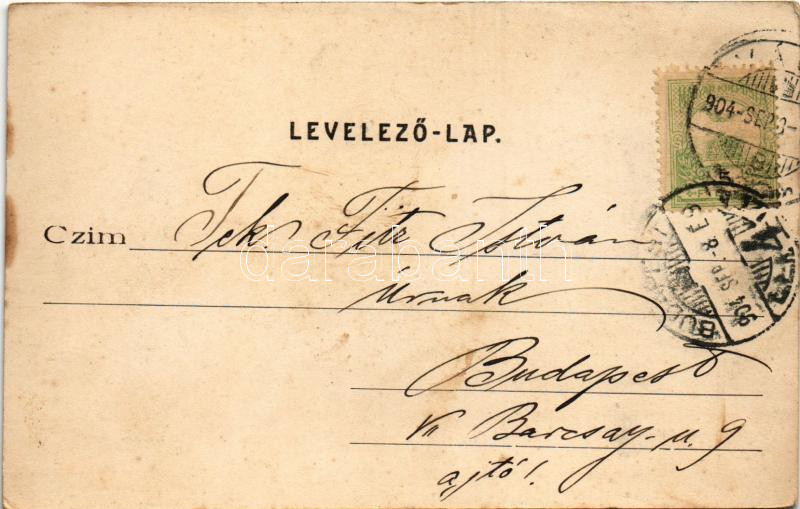 LEVELEZŐ-LAP.
904-SEP.8-
Czim Tek Fitz István
Úrnak
904 SEP -8
Budapest
VII Barcsay-u. 9
ajtó!
darabanth